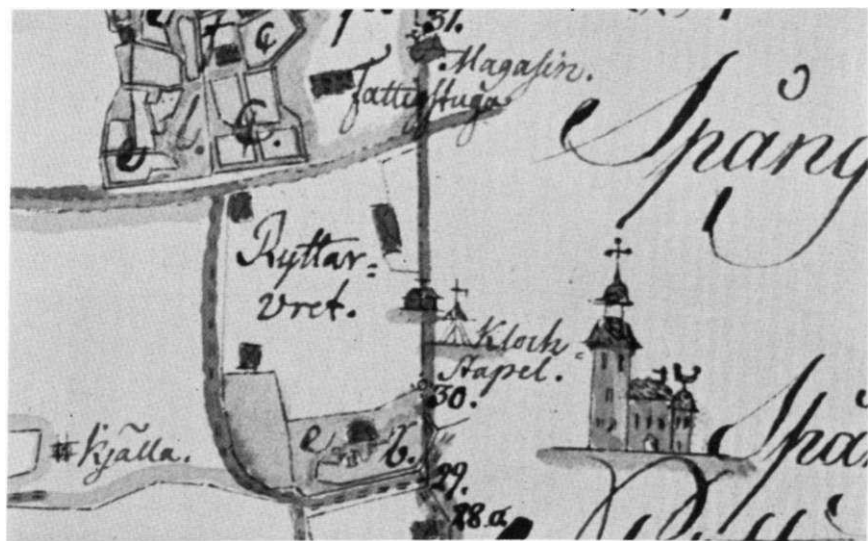 31.
Magasin.
fattigstuga
Spång
Ryttar=
vret.
Kloch=
stapel.
30.
Kjälla.
e
b.
29.
28.a.
Spå